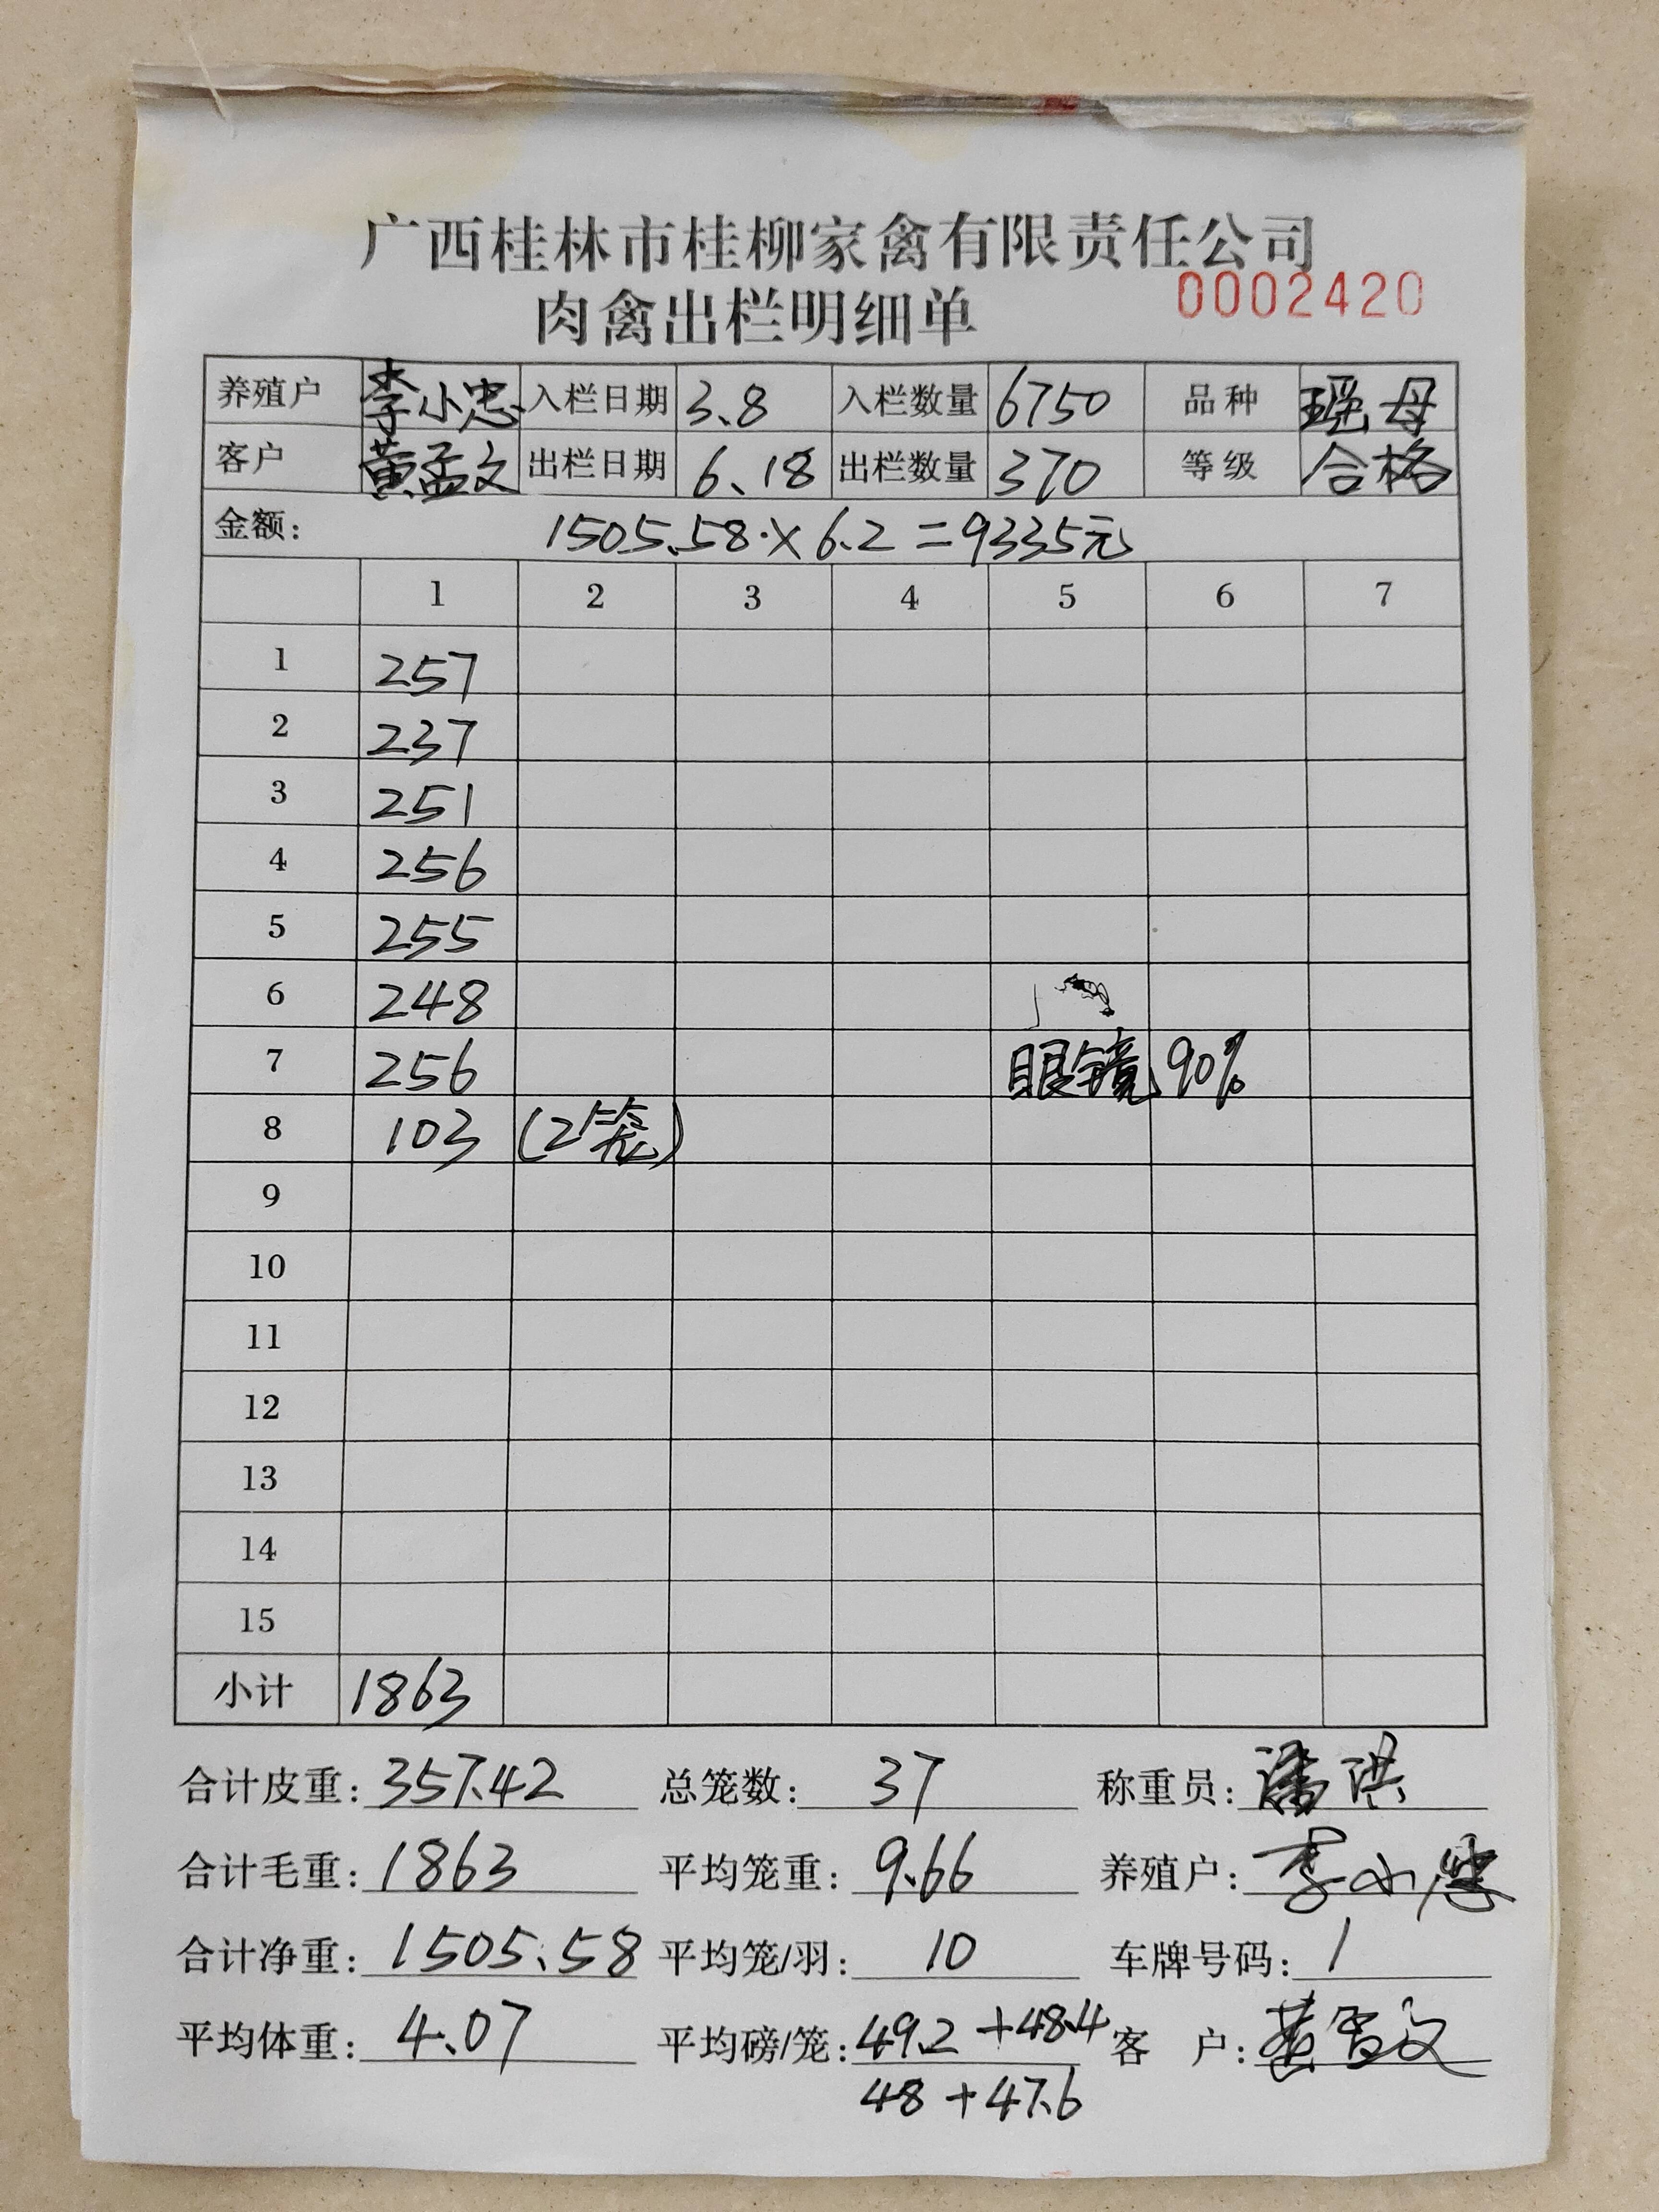 广西桂林市桂柳家禽有限责任公司
肉禽出栏明细单 0002420
养殖户 李小忠 入栏日期 3.8 入栏数量 6750 品种 瑶母
客户 黄孟文 出栏日期 6.18 出栏数量 370 等级 合格
金额: 1505.58×6.2=9335元
1 2 3 4 5 6 7
1 257
2 237
3 251
4 256
5 255
6 248
7 256 眼镜 90%
8 103 (2笼)
9
10
11
12
13
14
15
小计 1863
合计皮重: 357.42 总笼数: 37 称重员: 潘洪
合计毛重: 1863 平均笼重: 9.66 养殖户: 李小忠
合计净重: 1505.58 平均笼/羽: 10 车牌号码: 1
平均体重: 4.07 平均磅/笼: 49.2+48.4 客 户: 黄孟文
48+47.6